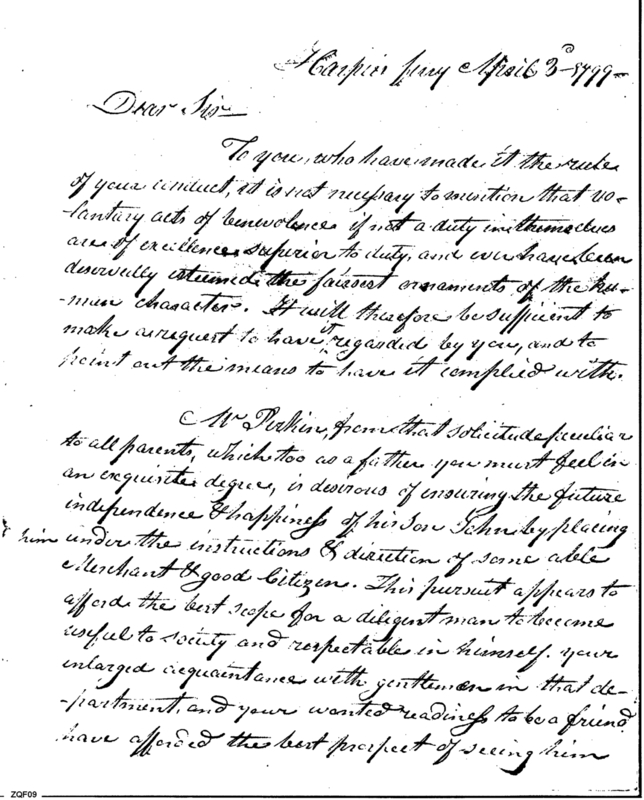 Harpers ferry April 3d 1799
Dear Sir
To you, who have made it the rule
of your conduct, it is not necessary to mention that vo-
-luntary acts of benevolence if not a duty in themselves
are of excellence superior to duty, and ever have been
deservedly esteemed the fairest ornaments of the hu-
-man character. It will therefore be sufficient to
make a request to have it regarded by you, and to
point out the means to have it complied with.
Mr Perkin, from that solicitude peculiar
to all parents, which too as a father you must feel in
an exquisite degree, is desirous of insuring the future
independence & happiness of his Son John by placing
him under the instructions & direction of some able
Merchant & good Citizen. This pursuit appears to
afford the best scope for a diligent man to become
useful to society and respectable in himself. your
enlarged acquaintance with gentlemen in that de-
-partment, and your wonted readiness to be a friend
have afforded the best prospect of seeing him
ZQF09